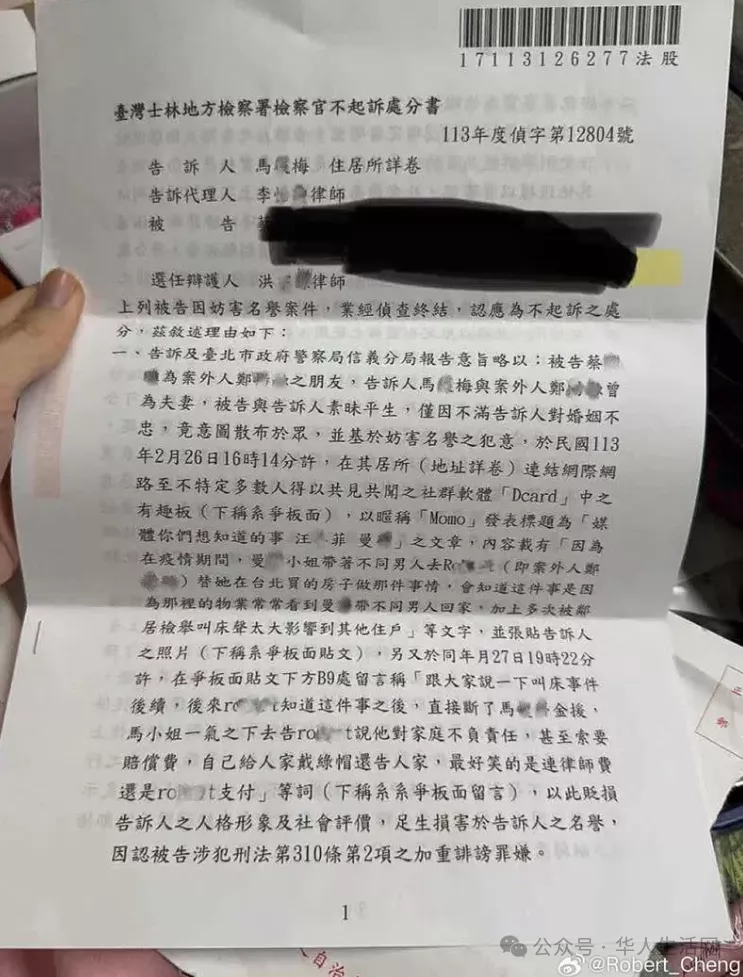 17113126277法股
臺灣士林地方檢察署檢察官不起訴處分書
113年度偵字第12804號
告訴人 馬 梅 住居所詳卷
告訴代理人 李 律師
被告 蔡
選任辯護人 洪 律師
上列被告因妨害名譽案件，業經偵查終結，認應為不起訴之處
分，茲敘述理由如下：
一、告訴及臺北市政府警察局信義分局報告意旨略以：被告蔡
為案外人鄭 之朋友，告訴人馬 梅與案外人鄭 曾
為夫妻，被告與告訴人素昧平生，僅因不滿告訴人對婚姻不
忠，竟意圖散布於眾，並基於妨害名譽之犯意，於民國113
年2月26日16時14分許，在其居所（地址詳卷）連結網際網
路至不特定多數人得以共見共聞之社群軟體「Dcard」中之
有趣板（下稱系爭板面），以暱稱「Momo」發表標題為「媒
體你們想知道的事 汪 菲 曼 」之文章，內容載有「因為
在疫情期間，曼 小姐帶著不同男人去Ro （即案外人鄭
）替她在台北買的房子做那件事情，會知道這件事是因
為那裡的物業常常看到曼 帶不同男人回家，加上多次被鄰
居檢舉叫床聲太大影響到其他住戶」等文字，並張貼告訴人
之照片（下稱系爭板面貼文），另又於同年月27日19時22分
許，在爭板面貼文下方B9處留言稱「跟大家說一下叫床事件
後續，後來ro t知道這件事之後，直接斷了馬 金援，
馬小姐一氣之下去告ro t說他對家庭不負責任，甚至索要
賠償費，自己給人家戴綠帽還告人家，最好笑的是連律師費
還是ro t支付」等詞（下稱系系爭板面留言），以此貶損
告訴人之人格形象及社會評價，足生損害於告訴人之名譽，
因認被告涉犯刑法第310條第2項之加重誹謗罪嫌。
1
公众号·华人生活网
@Robert_Cheng